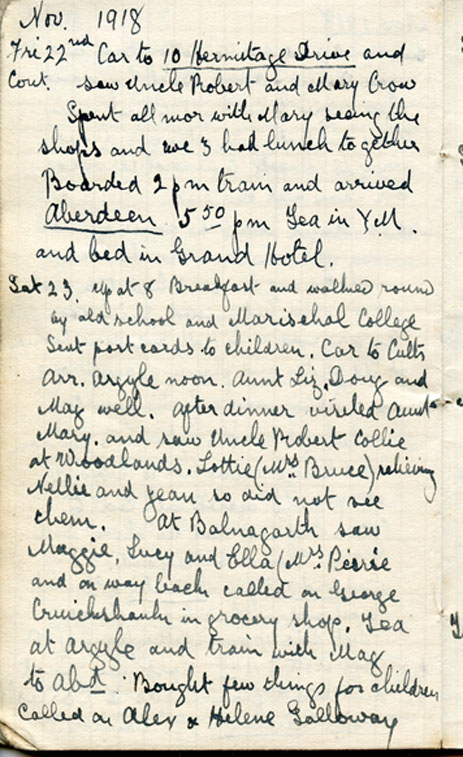 Nov. 1918
Fri 22nd Car to 10 Hermitage Drive and
Cont. saw Uncle Robert and Mary Crow
Spent all mor with Mary seeing the
shops and we 3 had lunch together
Boarded 2 pm train and arrived
Aberdeen 5 50 pm Tea in Y.M.
and bed in Grand Hotel.
Sat 23. up at 8 Breakfast and walked round
by old school and Marischal College
Sent post cards to children. Car to Cults
Arr. Argyle noon. Aunt Liz, Doug and
Mag well. After dinner visited Aunt
Mary. and saw Uncle Robert Collie
at Woodlands. Lottie (Mrs Bruce) relieving
Nellie and Jean so did not see
them. At Balnagarth saw
Maggie, Lucy and Ella (Mrs. Peirie
and on way back called on George
Cruickshank in grocery shop. Tea
at Argyle and train with Mag
to Abdn. Bought few things for children
Called on Alex & Helene Galloway